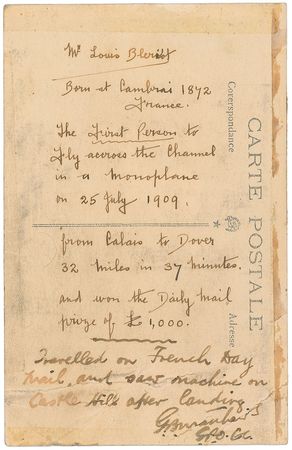 Mr Louis Bleriot
Born at Cambrai 1872
France.
The First Person to
Fly accross the Channel
in a Monoplane
on 25 July 1909.
from Calais to Dover
32 Miles in 37 Minutes.
and won the Daily Mail
prize of £1,000.
Travelled on French Day
Mail, and saw machine on
Castle Hill after landing
CARTE POSTALE
Correspondance
Adresse